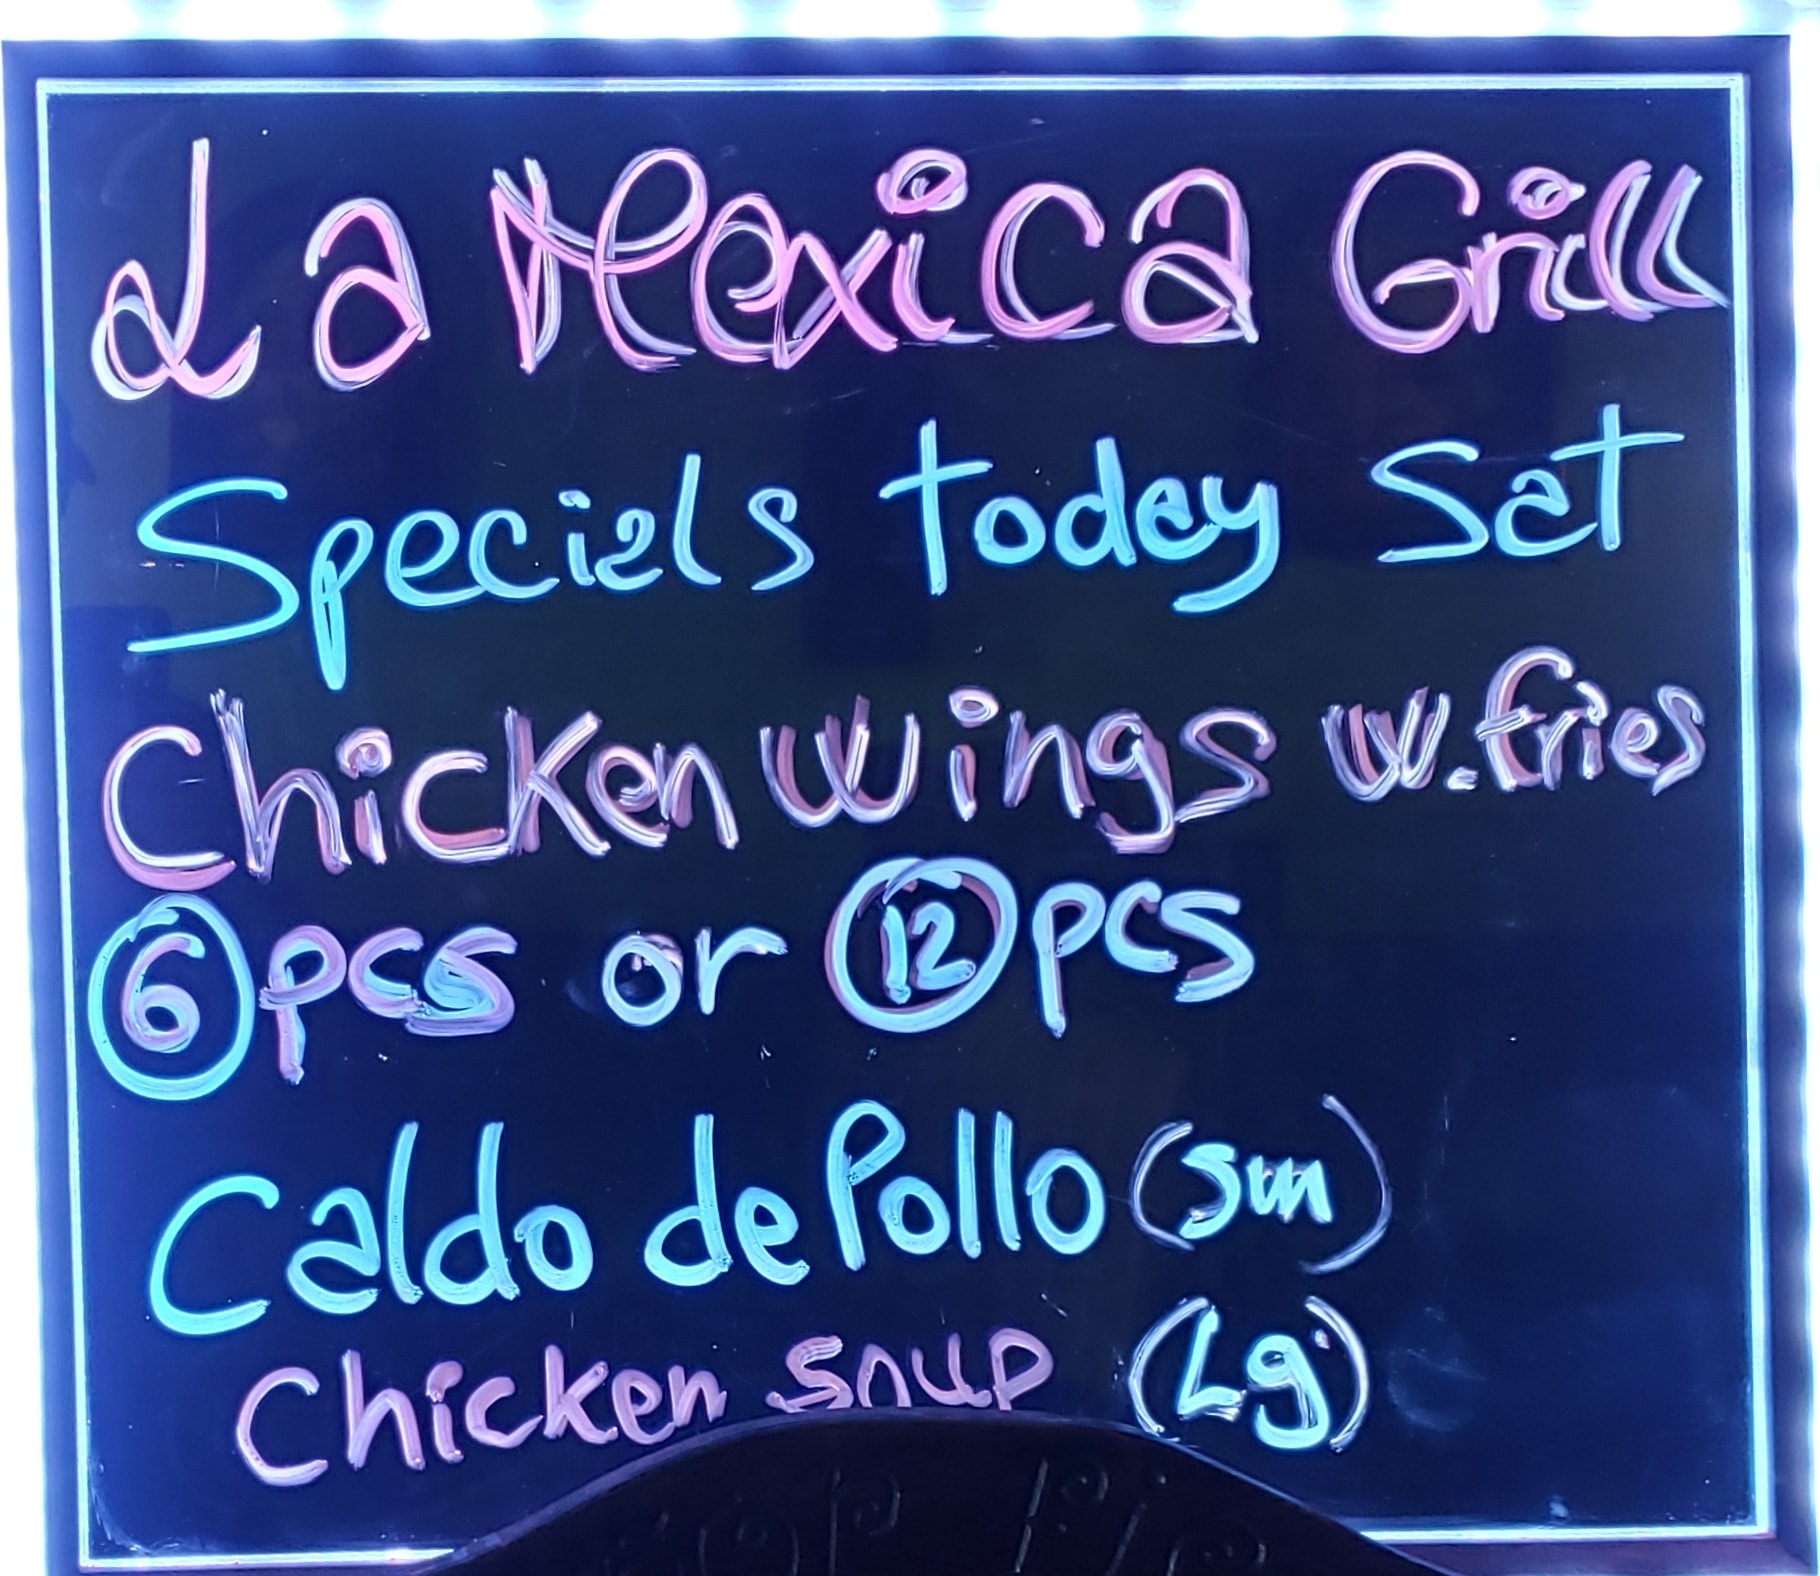 La Mexica Grill
Specials today Sat
Chicken Wings w. fries
6 pcs or 12 pcs
Caldo de Pollo (sm)
Chicken soup (Lg)